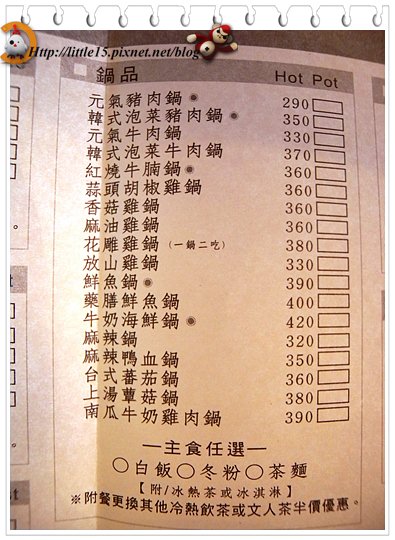 Http://little15.pixnet.net/blog
鍋品 Hot Pot
元氣豬肉鍋◉ 290
韓式泡菜豬肉鍋◉ 350
元氣牛肉鍋 330
韓式泡菜牛肉鍋 370
紅燒牛腩鍋◉ 360
蒜頭胡椒雞鍋 360
香菇雞鍋 360
麻油雞鍋 360
花雕雞鍋(一鍋二吃) 380
放山雞鍋 330
鮮魚鍋◉ 390
藥膳鮮魚鍋 400
牛奶海鮮鍋◉ 420
麻辣鍋 320
麻辣鴨血鍋 350
台式蕃茄鍋 360
上湯蕈菇鍋 380
南瓜牛奶雞肉鍋 390
—主食任選—
○白飯○冬粉○茶麵
【附/冰熱茶或冰淇淋】
※附餐更換其他冷熱飲茶或文人茶半價優惠。